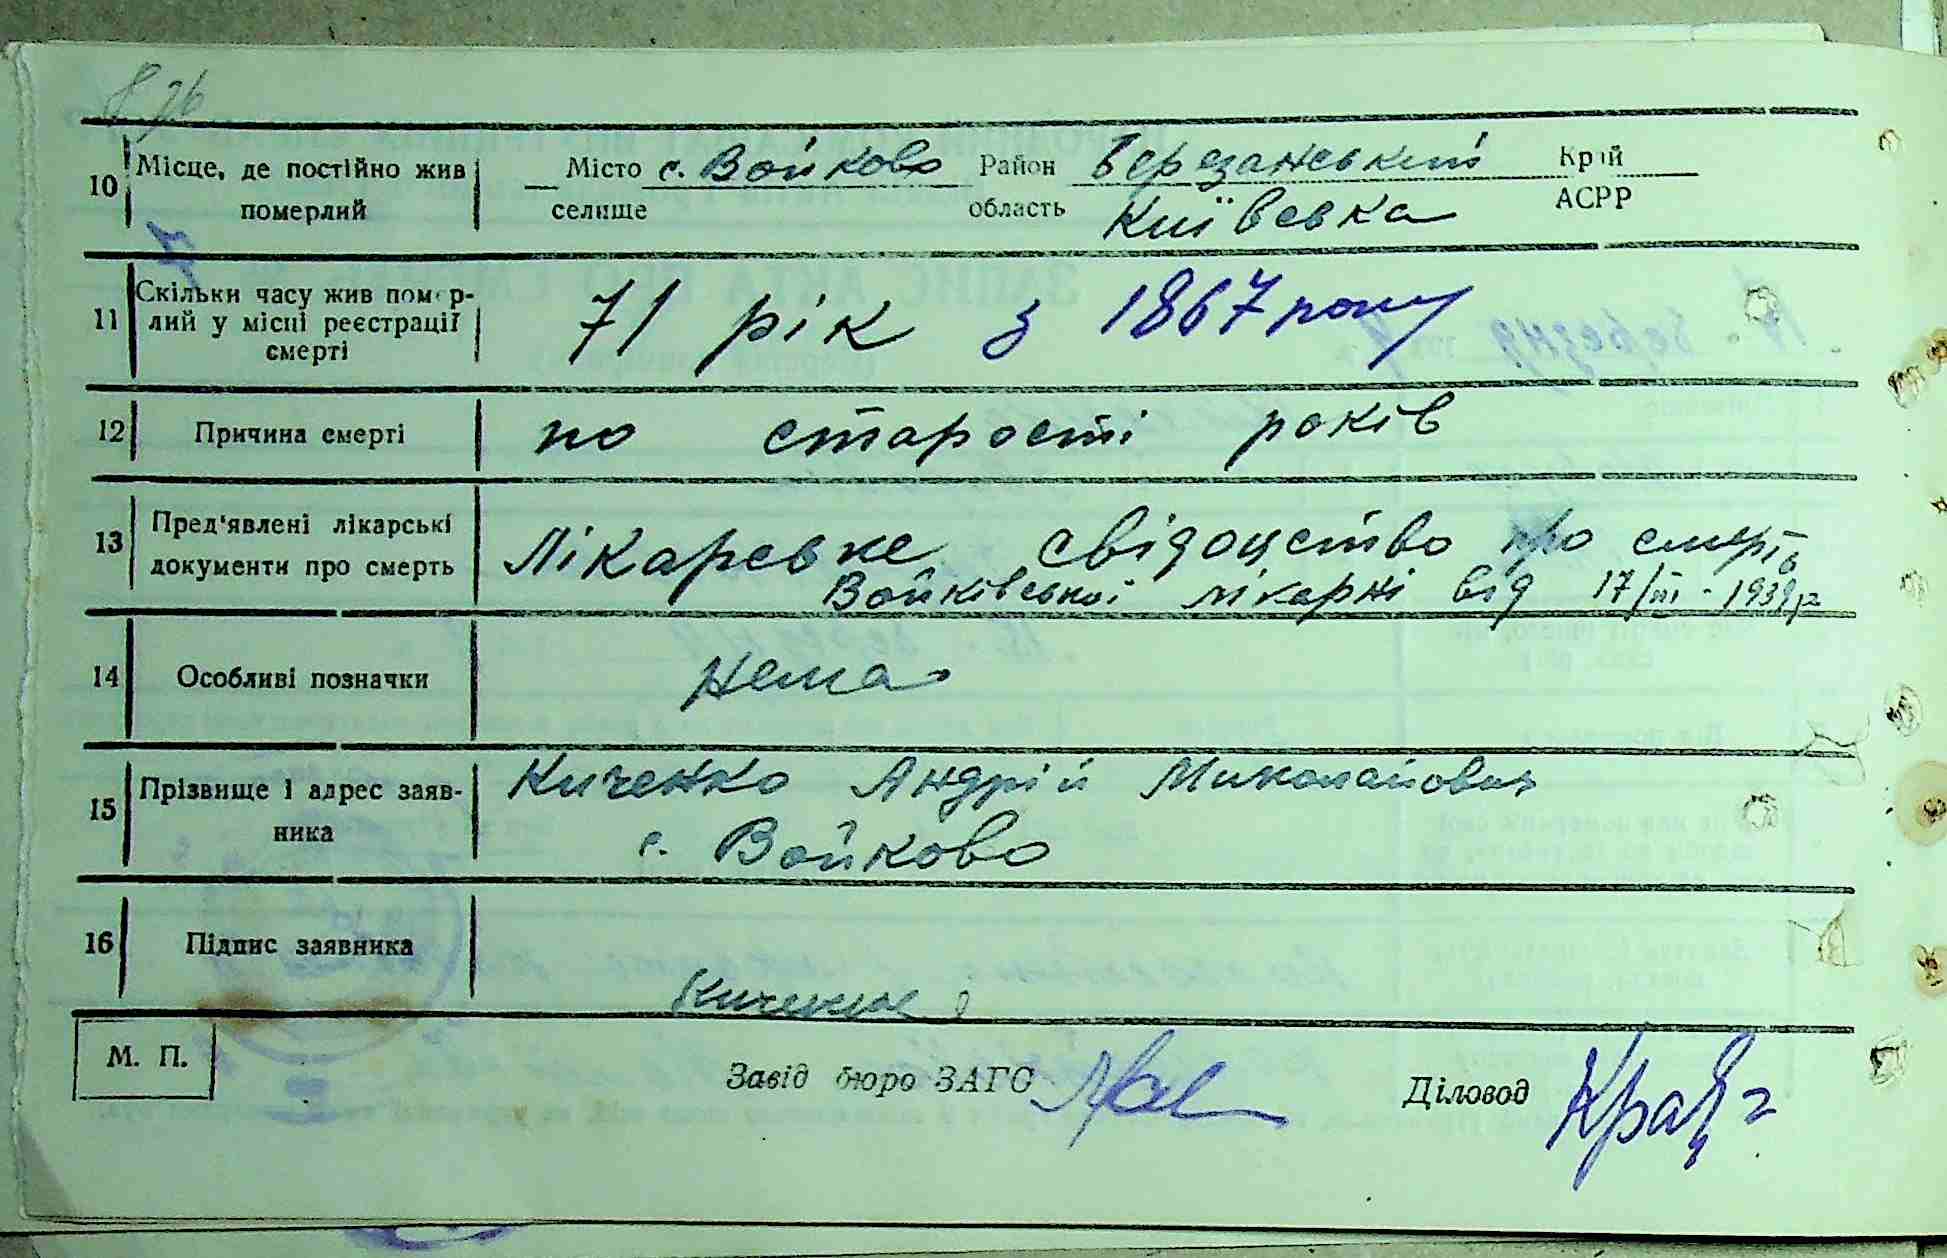 10 Місце, де постійно жив Місто с. Войково Район Березанський Край
померлий селище область Київська АСРР
11 Скільки часу жив помер-
лий у місці реєстрації 71 рік з 1867 року
смерті
12 Причина смерті по старості років
13 Пред'явлені лікарські Лікарське свідоцтво про смерть
документи про смерть Войківської лікарні від 17/III-1939р
14 Особливі позначки Нема
15 Прізвище і адрес заяв- Киченко Андрій Миколайович
ника с. Войково
16 Підпис заявника
М. П. Завід бюро ЗАГС Діловод